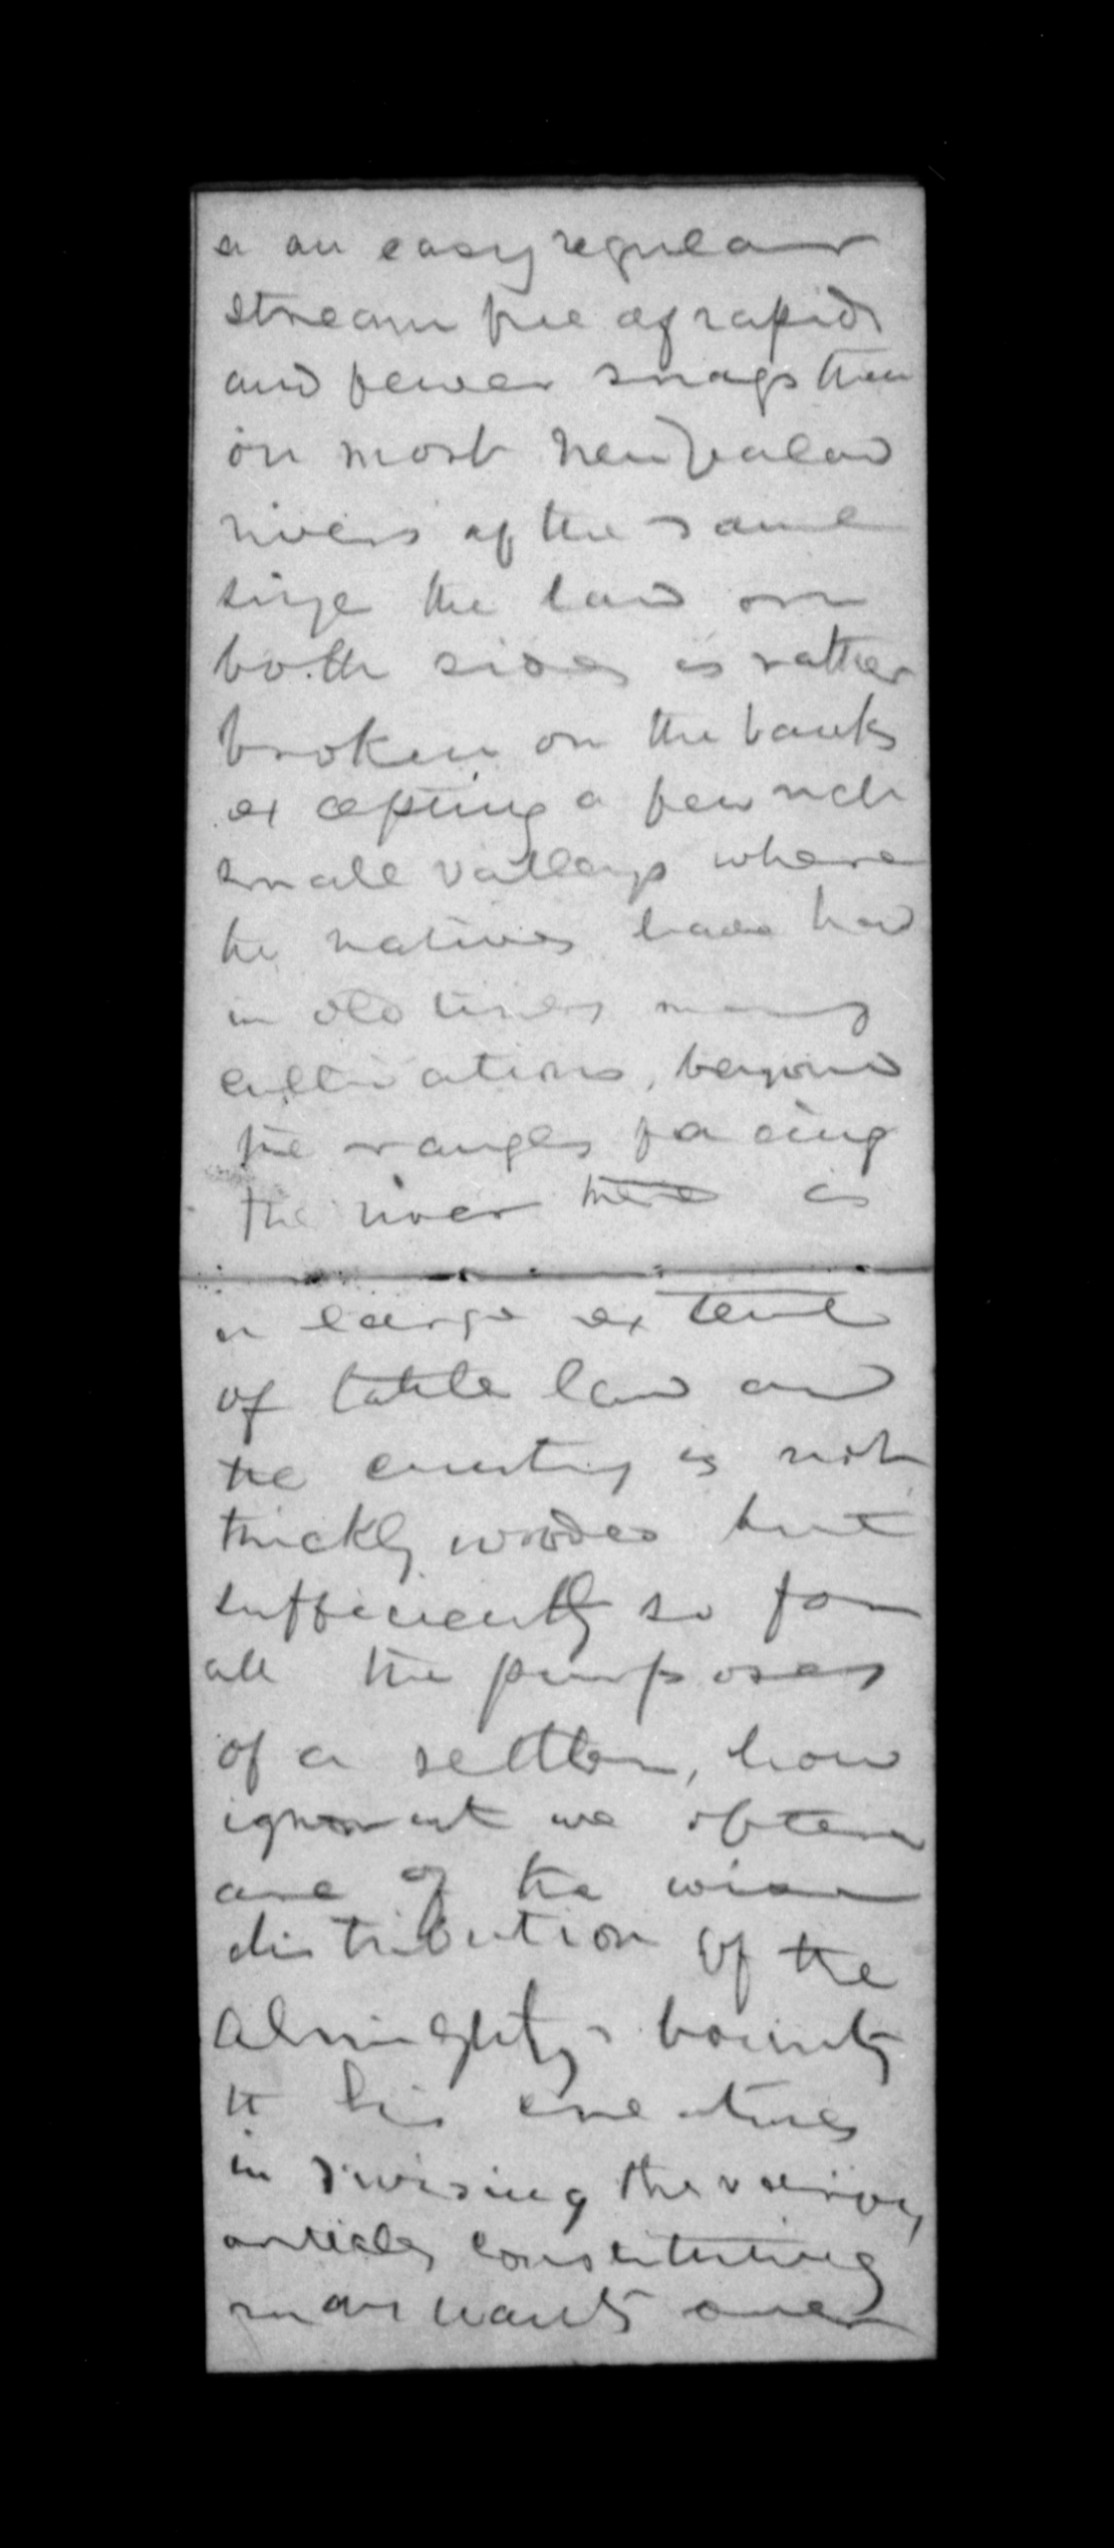 a an easy regular
stream free of rapids
and fewer snags than
on most New Zealand
rivers of the same
size the land on
both sides is rather
broken on the banks
excepting a few rich
small valleys where
the natives have had
in old times many
cultivations, beyond
the ranges facing
the river there is
a large extent
of table land and
the country is not
thickly wooded but
sufficiently so for
all the purposes
of a settler, how
ignorant we often
are of the wise
distribution of the
Almightys bounty
to his creatures
in divising the various
articles constituting
mans wants over